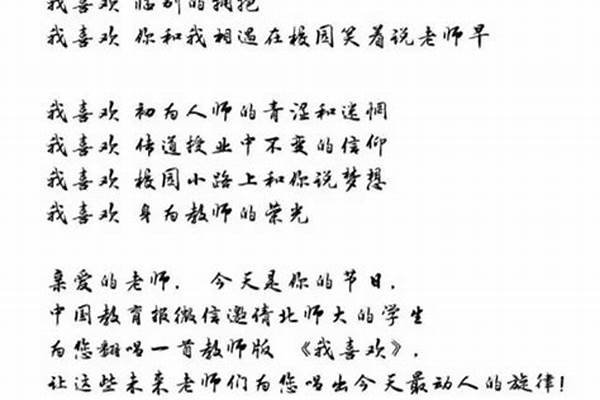 我喜欢 临别的拥抱
我喜欢 你和我相遇在校园笑着说老师早
我喜欢 初为人师的青涩和迷惘
我喜欢 传道授业中不变的信仰
我喜欢 校园小路上和你说梦想
我喜欢 身为教师的荣光
亲爱的老师, 今天是你的节日,
中国教育报微信邀请北师大的学生
为您翻唱一首教师版 《我喜欢》,
让这些未来老师们为您唱出今天最动人的旋律!